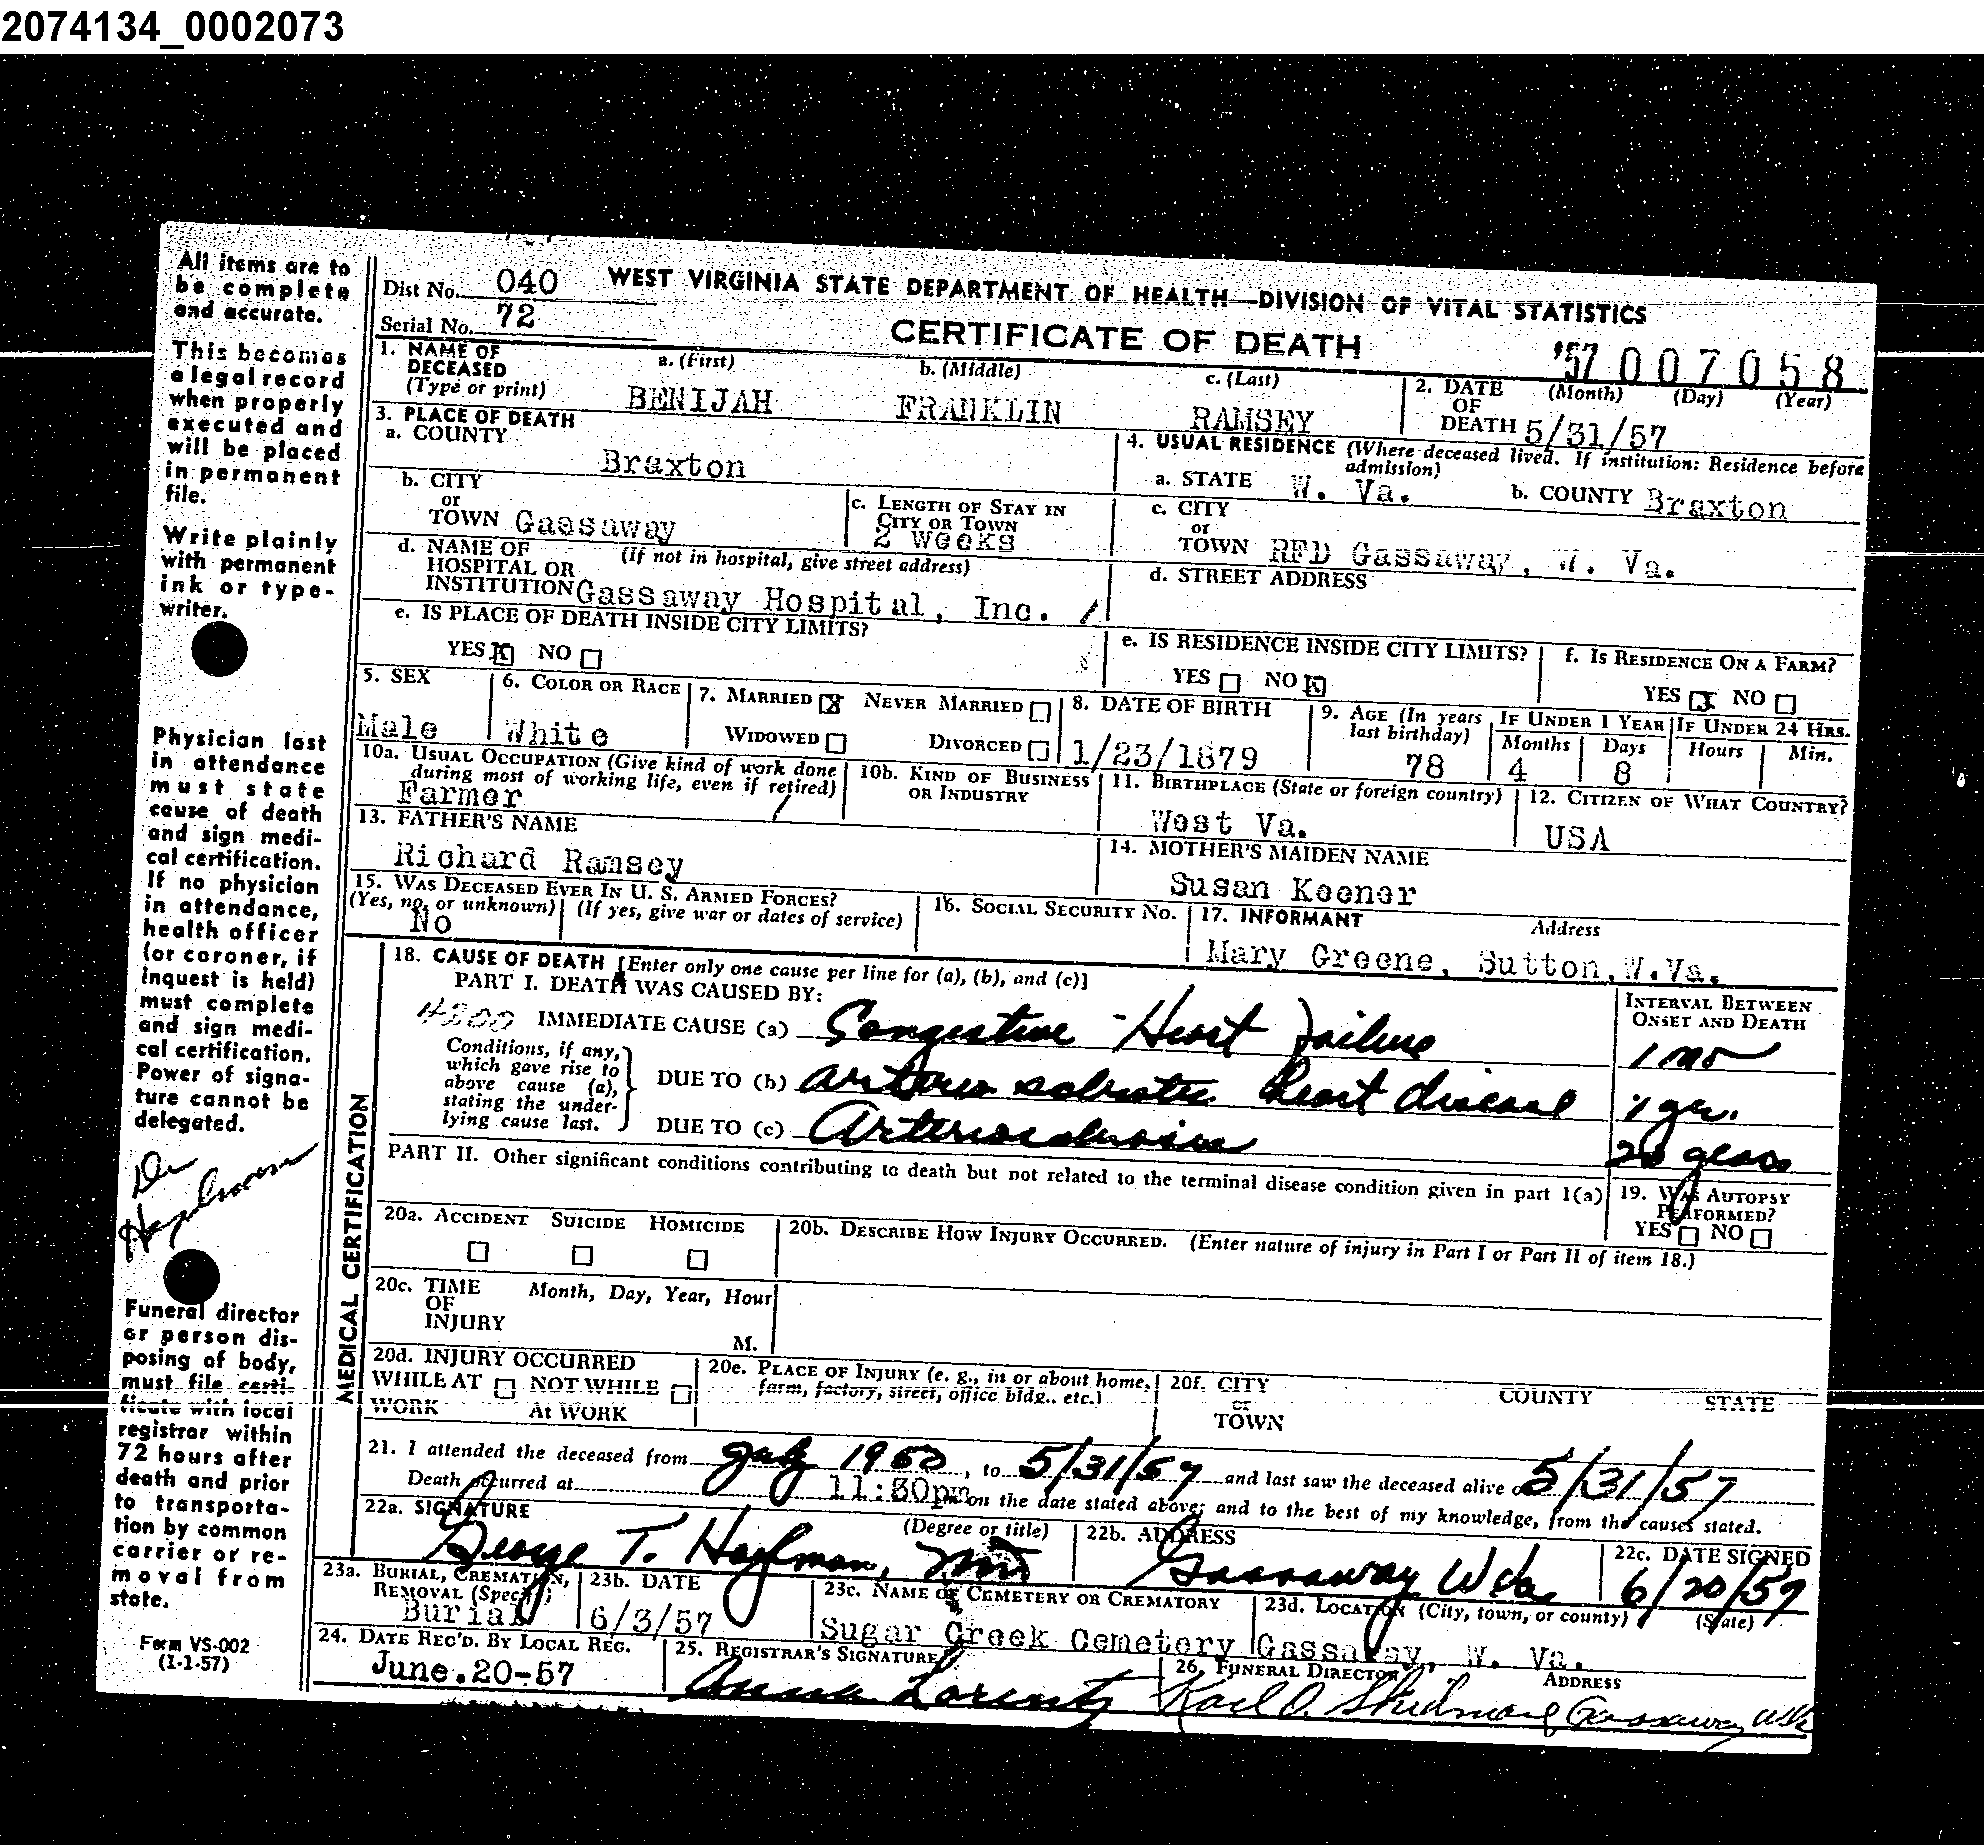 2074134_0002073
All items are to
be complete
and accurate.
This becomes
a legal record
when properly
executed and
will be placed
in permanent
file.
Write plainly
with permanent
ink or type-
writer.
Physician last
in attendance
must state
cause of death
and sign medi-
cal certification.
If no physician
in attendance,
health officer
(or coroner, if
inquest is held)
must complete
and sign medi-
cal certification.
Power of signa-
ture cannot be
delegated.
Funeral director
or person dis-
posing of body,
must file certi-
ficate with local
registrar within
72 hours after
death and prior
to transporta-
tion by common
carrier or re-
moval from
state.
Form VS-002
(1-1-57)
Dist No. 040 WEST VIRGINIA STATE DEPARTMENT OF HEALTH—DIVISION OF VITAL STATISTICS
Serial No. 72 CERTIFICATE OF DEATH
'57 007058
1. NAME OF DECEASED (Type or print) a. (First) b. (Middle) c. (Last)
BENIJAH FRANKLIN RAMSEY
2. DATE OF DEATH (Month) (Day) (Year)
5/31/57
3. PLACE OF DEATH
a. COUNTY
Braxton
4. USUAL RESIDENCE (Where deceased lived. If institution: Residence before admission)
a. STATE W. Va. b. COUNTY Braxton
b. CITY or TOWN Gassaway
c. LENGTH OF STAY IN CITY OR TOWN
2 weeks
c. CITY or TOWN RFD Gassaway, W. Va.
d. NAME OF HOSPITAL OR INSTITUTION (If not in hospital, give street address)
Gassaway Hospital, Inc.
d. STREET ADDRESS
e. IS PLACE OF DEATH INSIDE CITY LIMITS?
YES X NO
e. IS RESIDENCE INSIDE CITY LIMITS?
YES NO X
f. IS RESIDENCE ON A FARM?
YES X NO
5. SEX
Male
6. COLOR OR RACE
White
7. MARRIED X NEVER MARRIED
WIDOWED DIVORCED
8. DATE OF BIRTH
1/23/1879
9. AGE (In years last birthday)
78
IF UNDER 1 YEAR IF UNDER 24 HRS.
Months Days Hours Min.
4 8
10a. USUAL OCCUPATION (Give kind of work done during most of working life, even if retired)
Farmer
10b. KIND OF BUSINESS OR INDUSTRY
11. BIRTHPLACE (State or foreign country)
West Va.
12. CITIZEN OF WHAT COUNTRY?
USA
13. FATHER'S NAME
Richard Ramsey
14. MOTHER'S MAIDEN NAME
Susan Keener
15. WAS DECEASED EVER IN U. S. ARMED FORCES?
(Yes, no, or unknown) (If yes, give war or dates of service)
No
16. SOCIAL SECURITY NO.
17. INFORMANT Address
Mary Greene, Sutton, W.Va.
MEDICAL CERTIFICATION
18. CAUSE OF DEATH [Enter only one cause per line for (a), (b), and (c)]
PART I. DEATH WAS CAUSED BY:
INTERVAL BETWEEN ONSET AND DEATH
4200 IMMEDIATE CAUSE (a) Congestive Heart Failure 1 mo
Conditions, if any, which gave rise to above cause (a), stating the underlying cause last.
DUE TO (b) arteriosclerotic heart disease 1 yr.
DUE TO (c) Arteriosclerosis 20 years
PART II. Other significant conditions contributing to death but not related to the terminal disease condition given in part 1(a)
19. WAS AUTOPSY PERFORMED?
YES NO
20a. ACCIDENT SUICIDE HOMICIDE
20b. DESCRIBE HOW INJURY OCCURRED. (Enter nature of injury in Part I or Part II of item 18.)
20c. TIME OF INJURY Month, Day, Year, Hour
M.
20d. INJURY OCCURRED
WHILE AT WORK NOT WHILE At WORK
20e. PLACE OF INJURY (e. g., in or about home, farm, factory, street, office bldg., etc.)
20f. CITY or TOWN COUNTY STATE
21. I attended the deceased from July 1950, to 5/31/57 and last saw the deceased alive 5/31/57
Death occurred at 11:30pm on the date stated above; and to the best of my knowledge, from the causes stated.
22a. SIGNATURE (Degree or title)
George T. Hoylman, MD
22b. ADDRESS
Gassaway W Va
22c. DATE SIGNED
6/20/57
23a. BURIAL, CREMATION, REMOVAL (Specify)
Burial
23b. DATE
6/3/57
23c. NAME OF CEMETERY OR CREMATORY
Sugar Creek Cemetery
23d. LOCATION (City, town, or county) (State)
Gassaway, W. Va.
24. DATE REC'D. BY LOCAL REG.
June.20-57
25. REGISTRAR'S SIGNATURE
Anna Lorentz
26. FUNERAL DIRECTOR ADDRESS
Karl O. Gassaway WVa